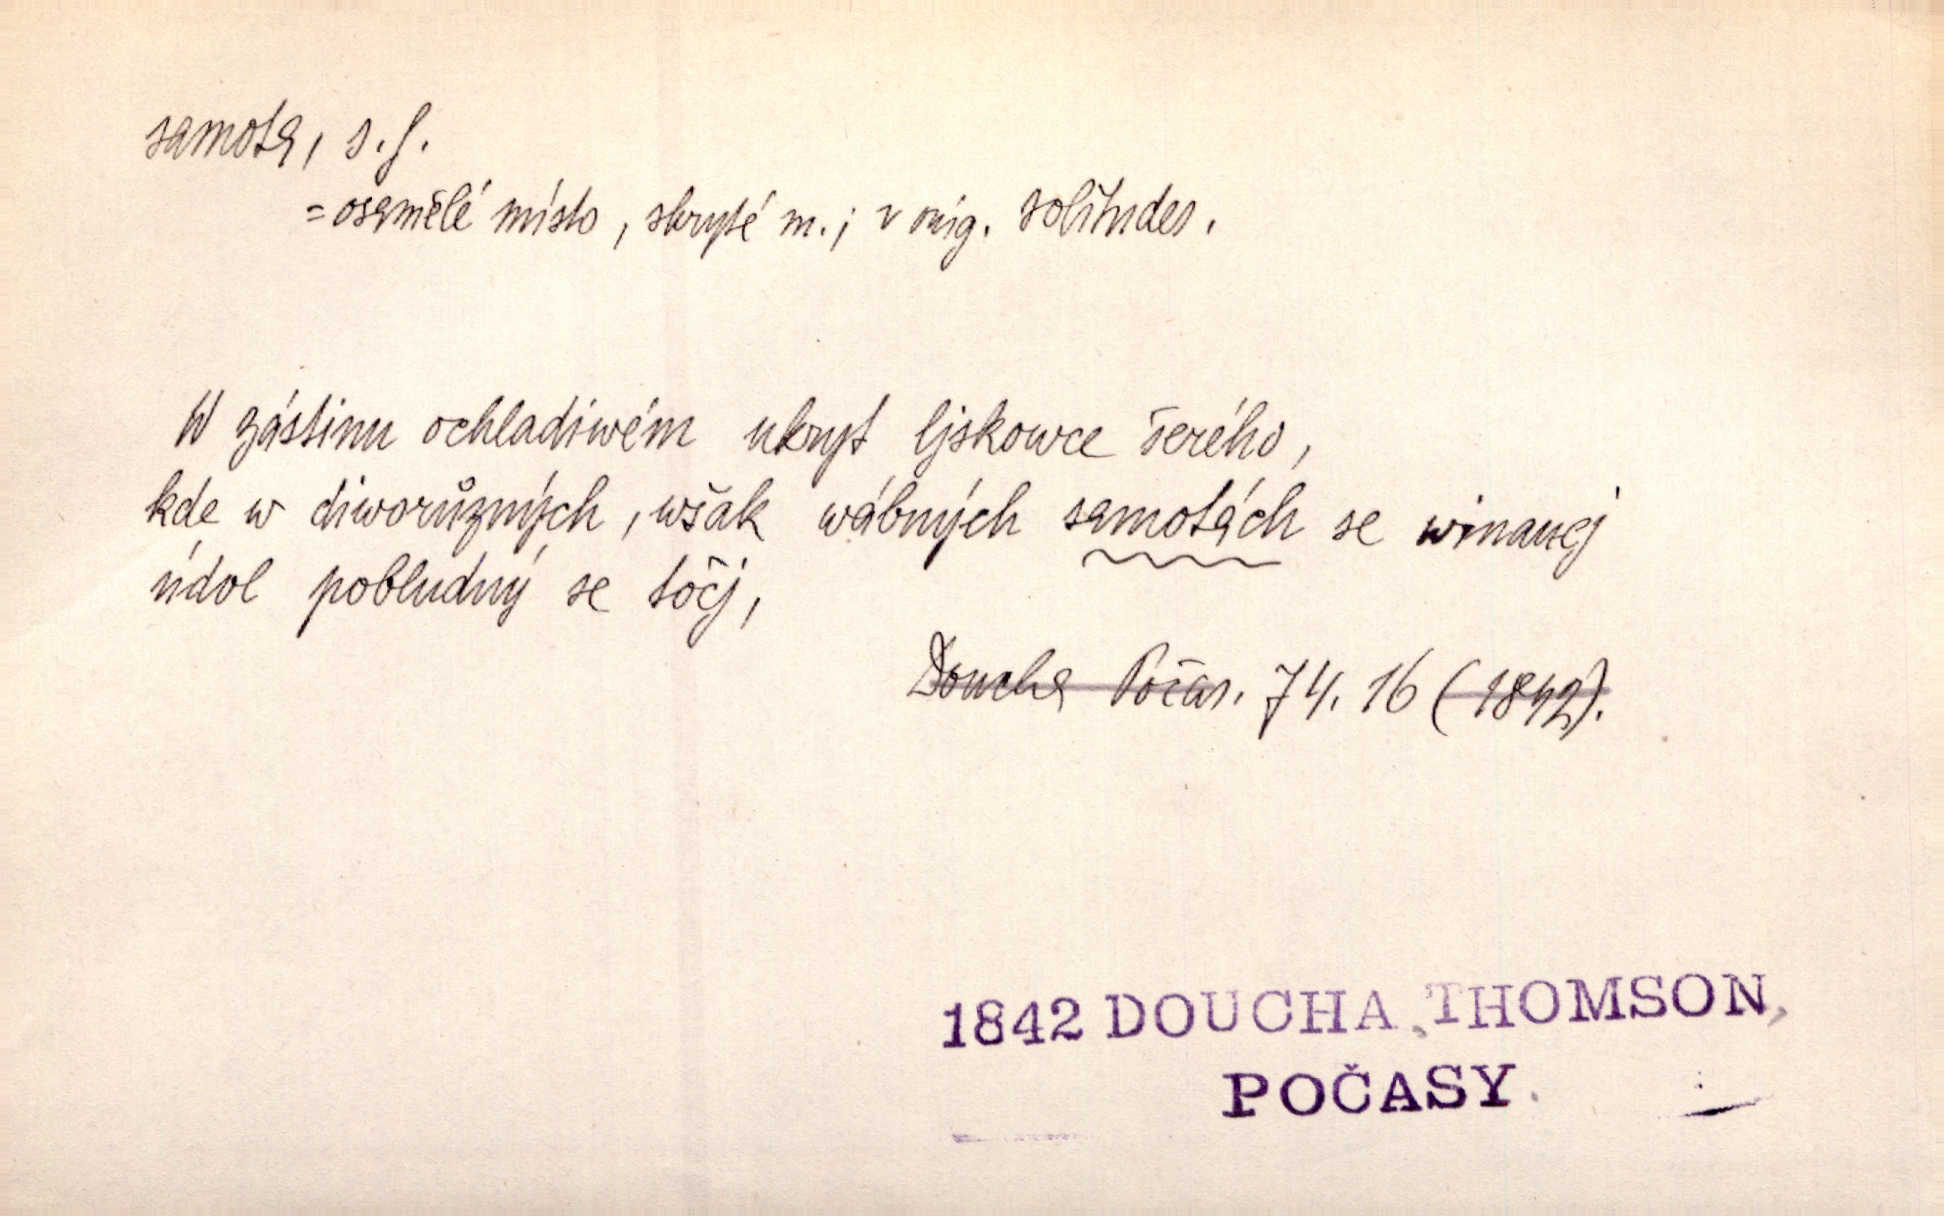 samota, s. f.
= osamělé místo, skryté m.; v orig. solitudes.
W zástinu ochladiwém ukryt ljskowce šerého,
kde w diworůzných, wšak wábných samotách se winaucj
údol pobludný se točj,
Doucha Počas. 74. 16 (1842).
1842 DOUCHA, THOMSON,
POČASY.